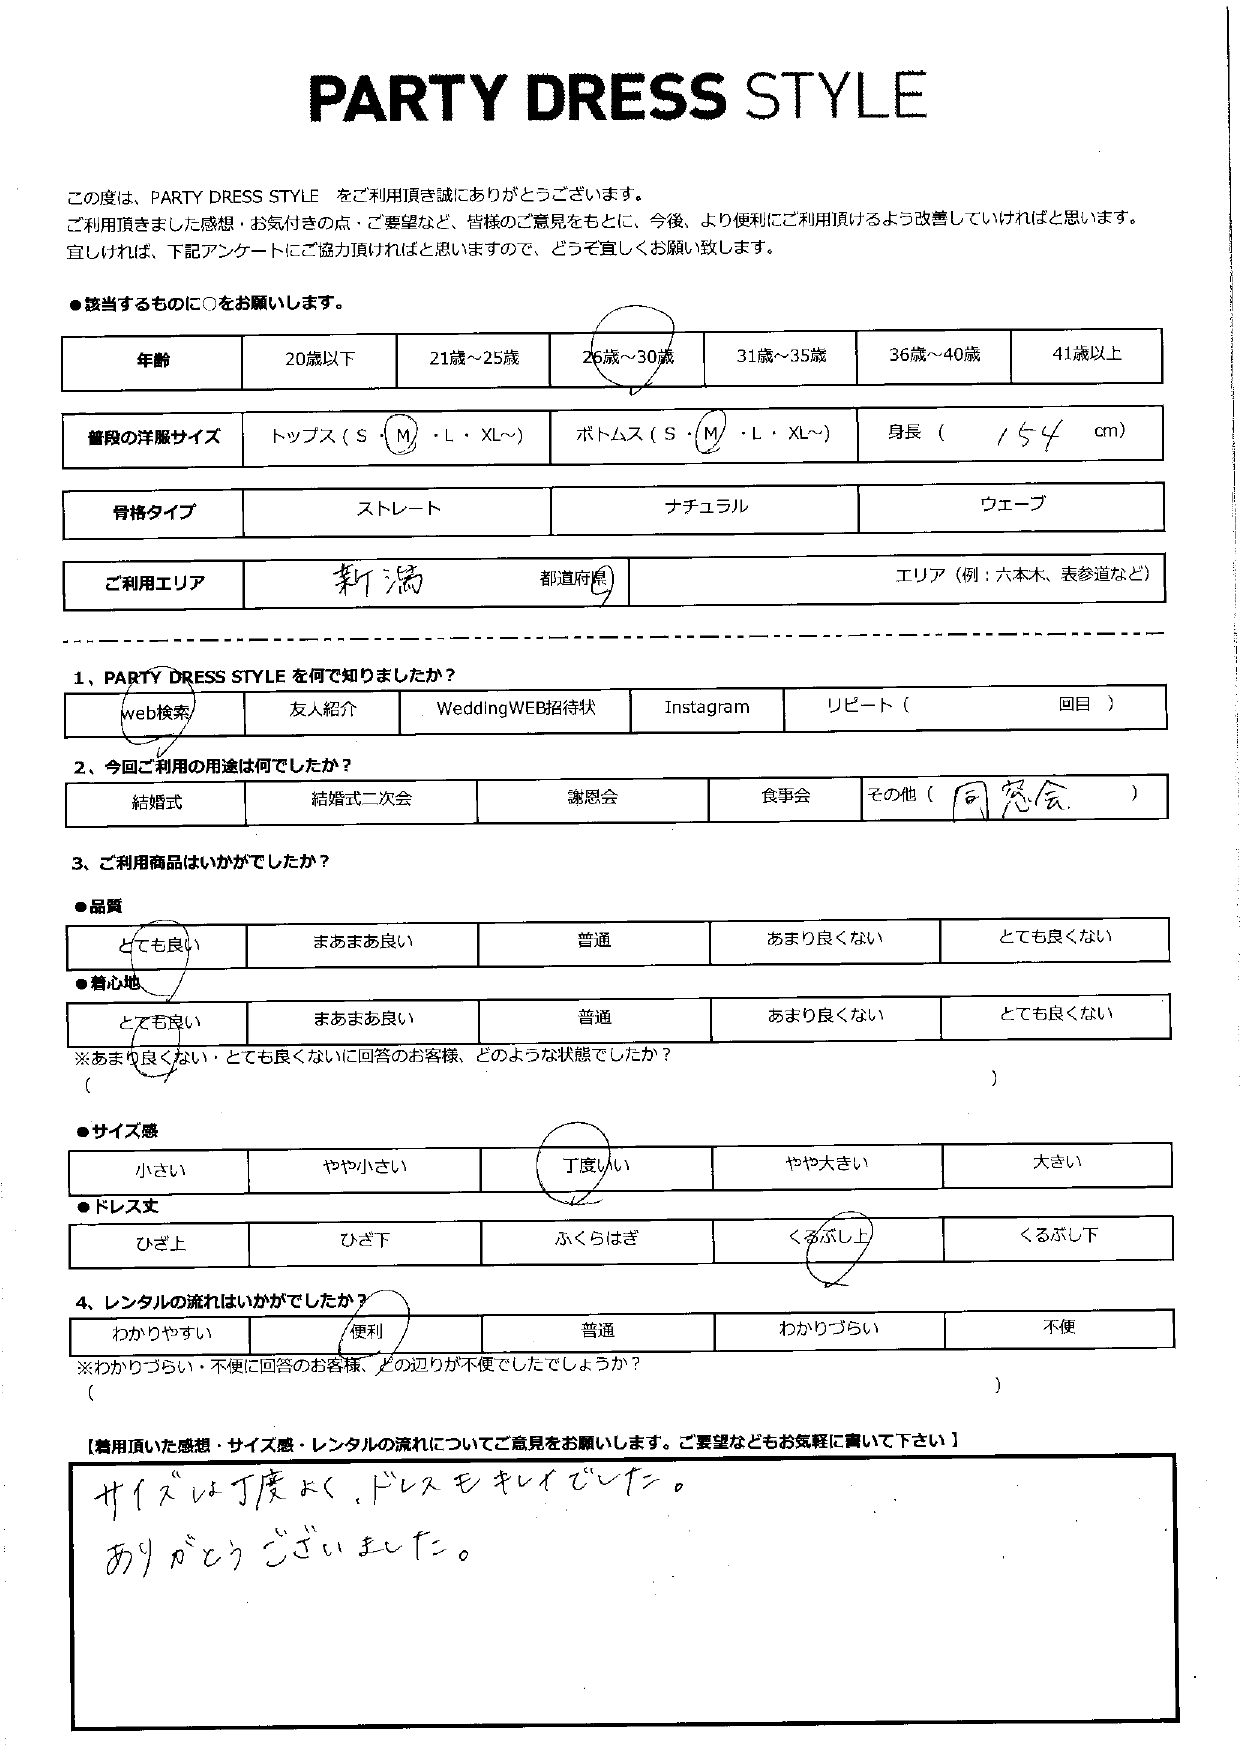 PARTY DRESS STYLE
この度は、PARTY DRESS STYLE をご利用頂き誠にありがとうございます。
ご利用頂きました感想・お気付きの点・ご要望など、皆様のご意見をもとに、今後、より便利にご利用頂けるよう改善していければと思います。
宜しければ、下記アンケートにご協力頂ければと思いますので、どうぞ宜しくお願い致します。
●該当するものに○をお願いします。
年齢 20歳以下 21歳～25歳 26歳～30歳 31歳～35歳 36歳～40歳 41歳以上
普段の洋服サイズ トップス ( S ・ M ・L ・ XL～) ボトムス ( S ・ M ・L ・ XL～) 身長 ( 154 cm)
骨格タイプ ストレート ナチュラル ウェーブ
ご利用エリア 新潟 都道府県 エリア（例：六本木、表参道など）
1、PARTY DRESS STYLE を何で知りましたか？
web検索 友人紹介 WeddingWEB招待状 Instagram リピート ( 回目 )
2、今回ご利用の用途は何でしたか？
結婚式 結婚式二次会 謝恩会 食事会 その他 ( 同窓会. )
3、ご利用商品はいかがでしたか？
●品質
とても良い まあまあ良い 普通 あまり良くない とても良くない
●着心地
とても良い まあまあ良い 普通 あまり良くない とても良くない
※あまり良くない・とても良くないに回答のお客様、どのような状態でしたか？
( )
●サイズ感
小さい やや小さい 丁度いい やや大きい 大きい
●ドレス丈
ひざ上 ひざ下 ふくらはぎ くるぶし上 くるぶし下
4、レンタルの流れはいかがでしたか？
わかりやすい 便利 普通 わかりづらい 不便
※わかりづらい・不便に回答のお客様、どの辺りが不便でしたでしょうか？
( )
【着用頂いた感想・サイズ感・レンタルの流れについてご意見をお願いします。ご要望などもお気軽に書いて下さい】
サイズは丁度よく、ドレスもキレイでした。
ありがとうございました。